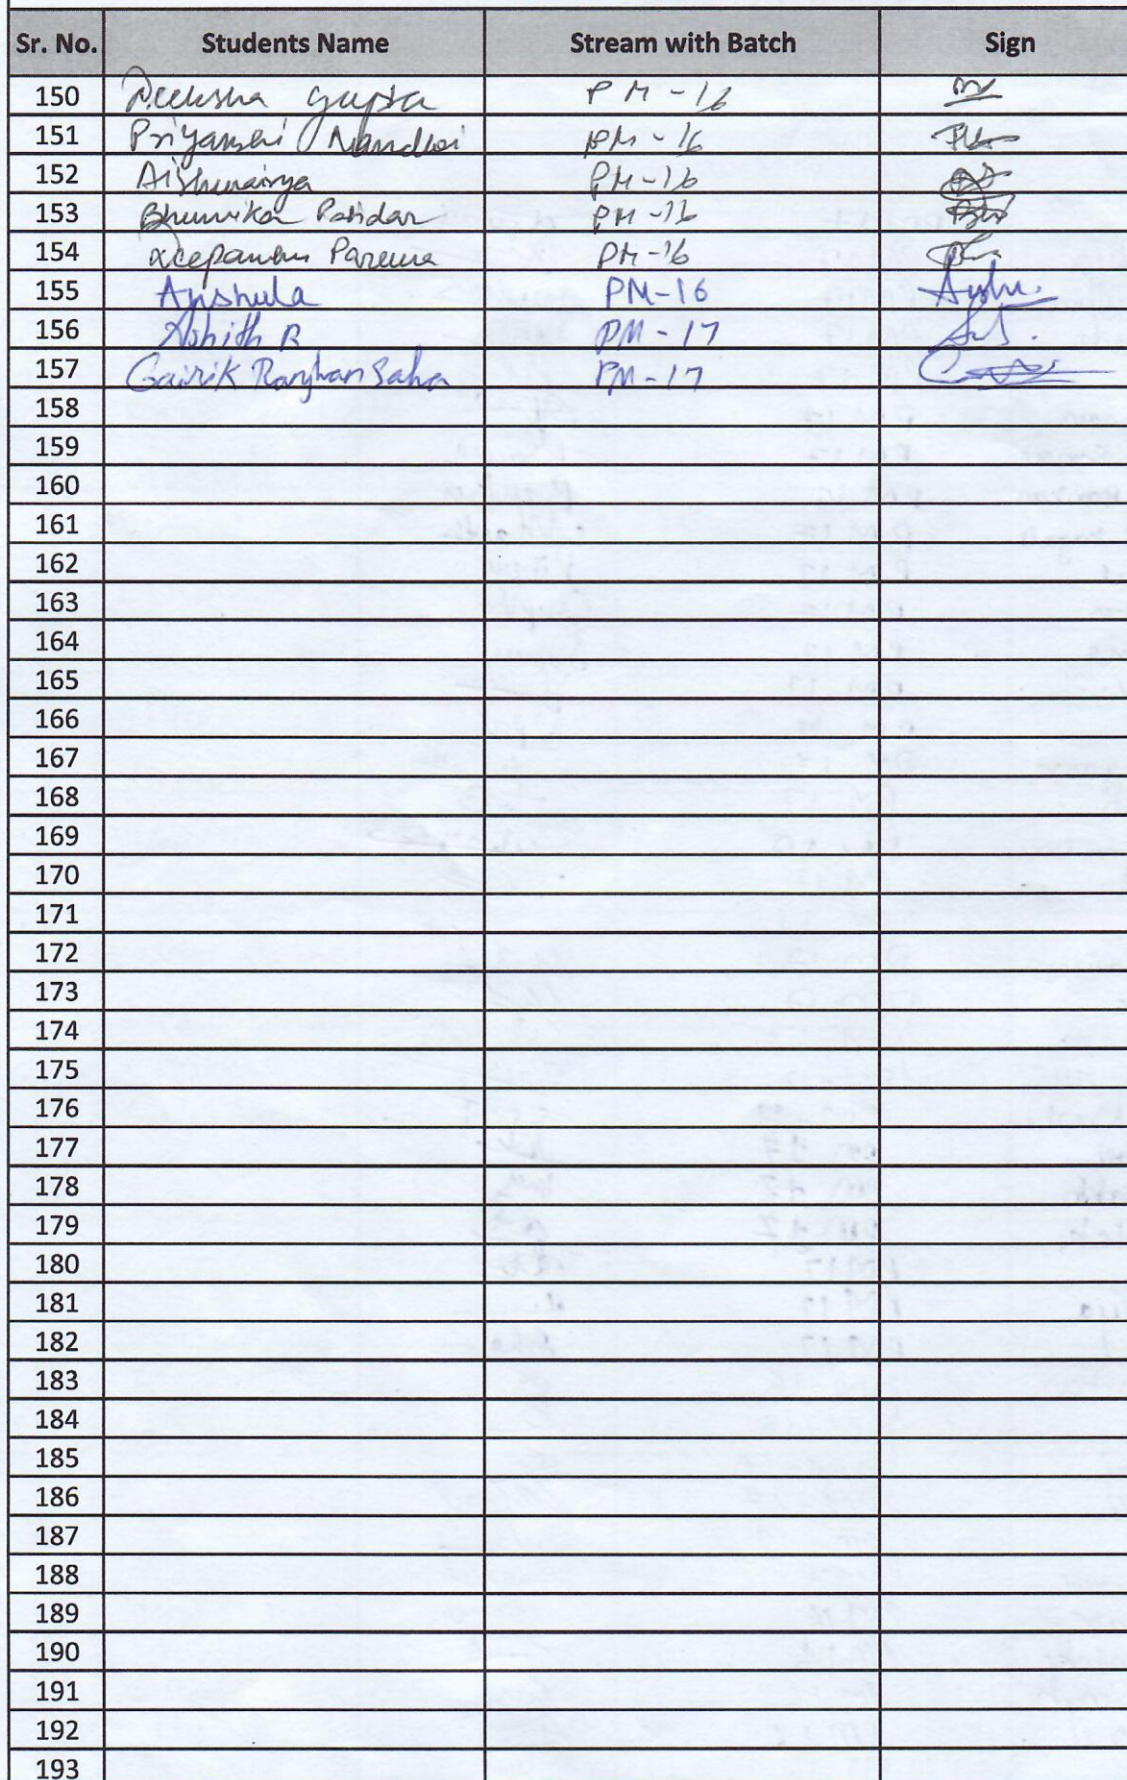 Sr. No. Students Name Stream with Batch Sign
150 Deeksha Gupta PM-16
151 Priyanshi PM-16
152 Aishwairya PM-16
153 Bhumika Patidar PM-16
154 PM-16
155 Anshula PM-16 Anshu.
156 Ashith R PM-17
157 Gairik Ranjhan Saha PM-17
158
159
160
161
162
163
164
165
166
167
168
169
170
171
172
173
174
175
176
177
178
179
180
181
182
183
184
185
186
187
188
189
190
191
192
193